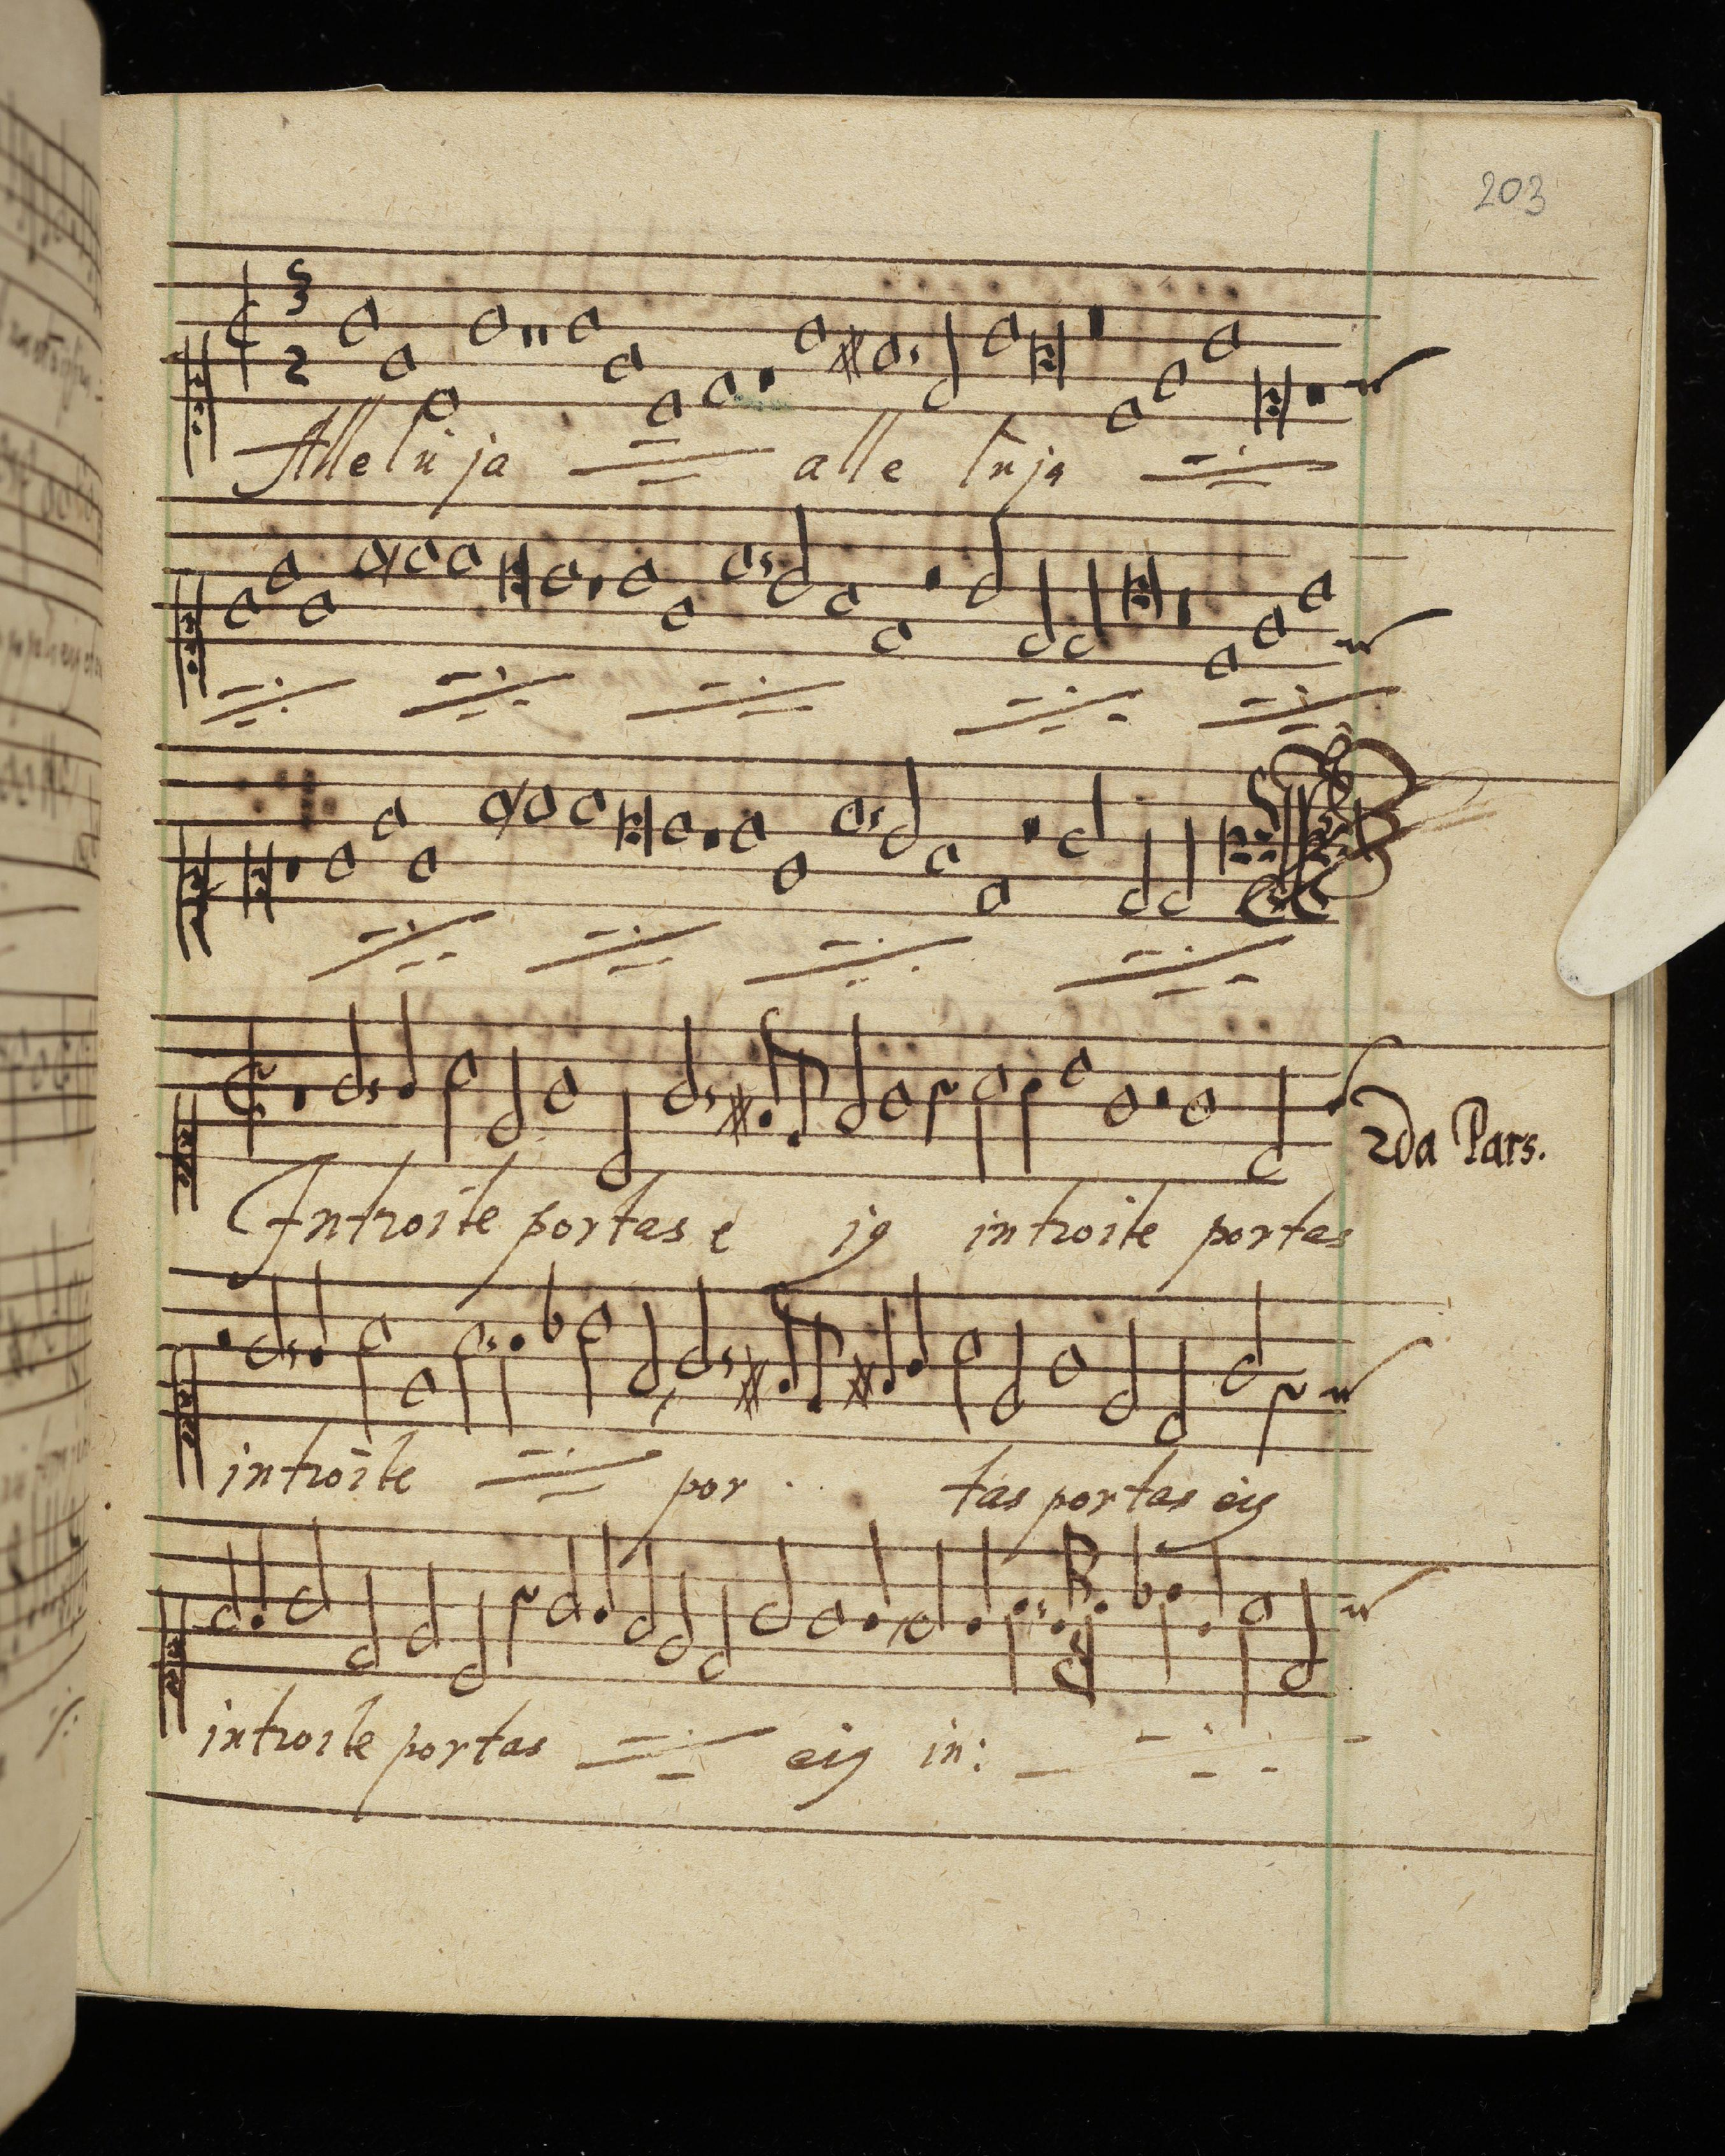 203
3
2
Alleluja alle luja
2da Pars.
Introite portas e ig introite portas
introite por tas portas eig
introite portas eig in: